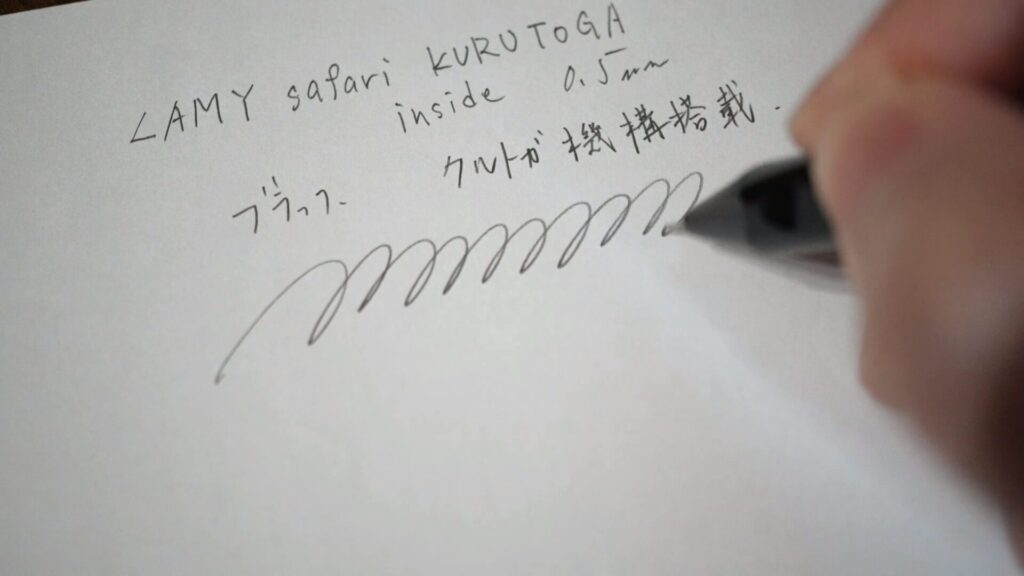 LAMY safari KURUTOGA
inside 0.5mm
ブラック クルトガ機構搭載.